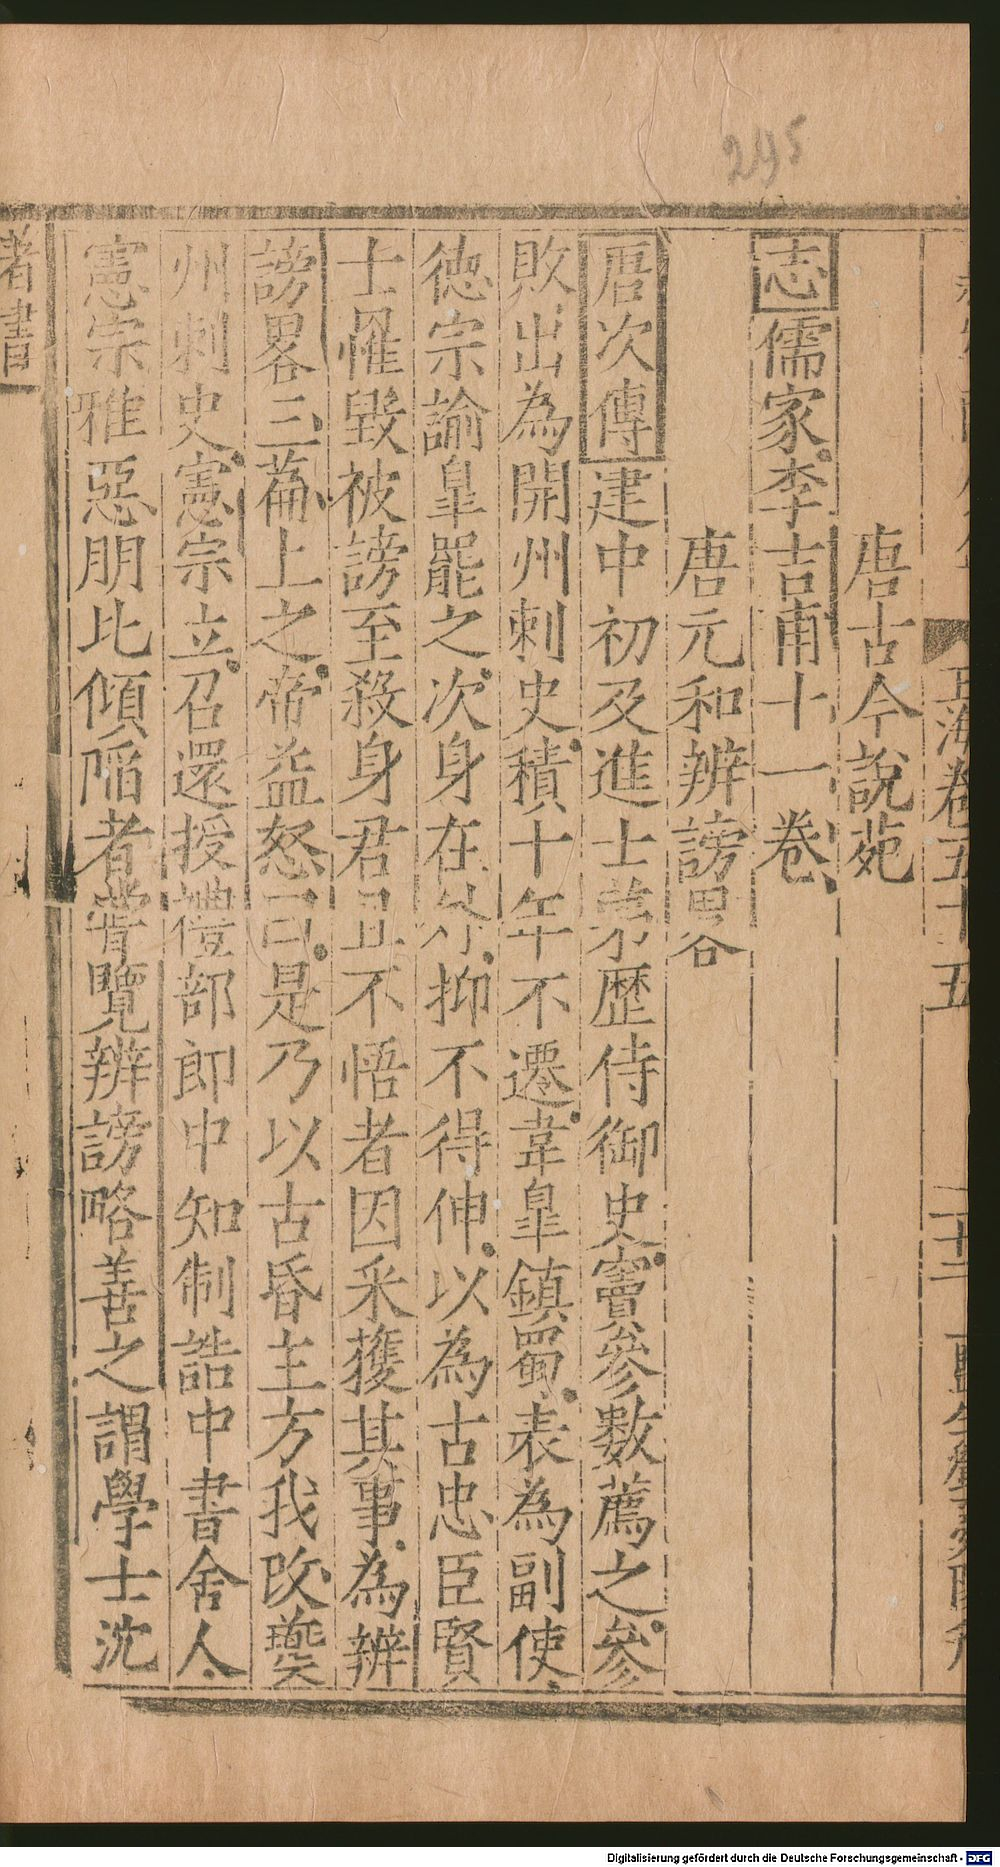 295
玉海卷五十五
唐古今說苑
志儒家李吉甫十一卷
唐元和辨謗畧
唐次傳建中初及進士第歷侍御史竇參數薦之參
敗出為開州刺史積十年不遷韋臯鎮蜀表為副使
德宗諭臯罷之次身在外抑不得伸以為古忠臣賢
士罹毀被謗至殺身君且不悟者因采獲其事為辨
謗畧三篇上之帝益怒曰是乃以古昏主方我改夔
州刺史憲宗立召還授禮部郎中知制誥中書舍人
憲宗雅惡朋比傾陷者甞覽辨謗略善之謂學士沈
著書
Digitalisierung gefördert durch die Deutsche Forschungsgemeinschaft - DFG